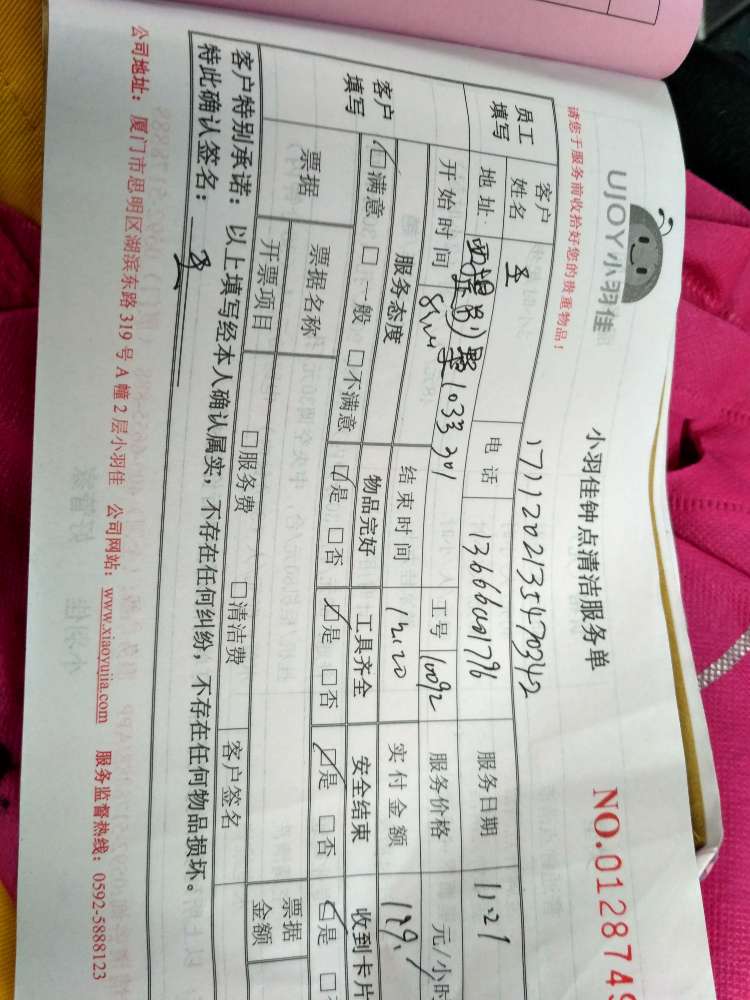 UJOY小羽佳
小羽佳钟点清洁服务单
NO.0128749
请您于服务前收拾好您的贵重物品！
1711202135470342
员工填写
客户姓名
电话
服务日期 11.29
地址：
1033 301
工号 10092
服务价格 元/小时
开始时间
结束时间 12:20
实付金额
客户填写
服务态度 物品完好 工具齐全 安全结束 收到卡片
□满意 □一般 □不满意 □是 □否 □是 □否 □是 □否 □是
票据 票据名称 票据金额
开票项目 □服务费 □清洁费 客户签名
客户特别承诺：以上填写经本人确认属实，不存在任何纠纷，不存在任何物品损坏。
特此确认签名：
公司地址：厦门市思明区湖滨东路319号A幢2层小羽佳 公司网站：www.xiaoyujia.com 服务监督热线：0592-5888123